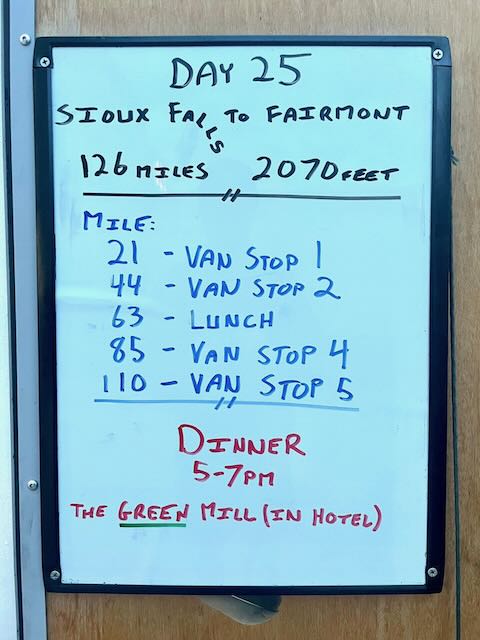 DAY 25
SIOUX FALLS TO FAIRMONT
126 MILES 2070 FEET
MILE:
21 - VAN STOP 1
44 - VAN STOP 2
63 - LUNCH
85 - VAN STOP 4
110 - VAN STOP 5
DINNER
5-7PM
THE GREEN MILL (IN HOTEL)